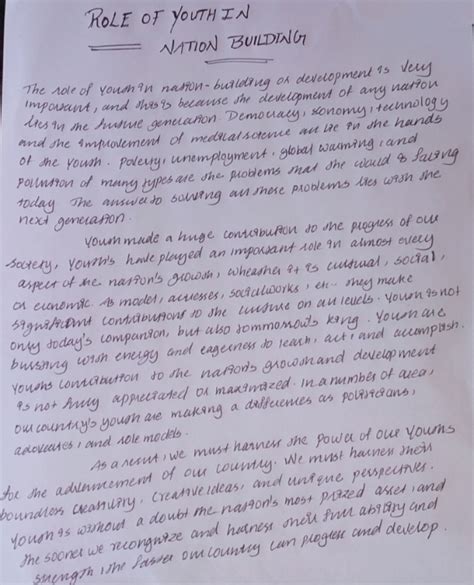 ROLE OF YOUTH IN
NATION BUILDING
The role of youth in nation-building or development is very
important, and this is because the development of any nation
lies in the future generation. Democracy, economy, technology
and the improvement of medical science all lie in the hands
of the youth. Poverty, unemployment, global warming, and
pollution of many types are the problems that the world is facing
today. The answer to solving all these problems lies with the
next generation.
Youth made a huge contribution to the progress of our
society, Youth's have played an important role in almost every
aspect of the nation's growth, wheather it is cultural, social,
or economic. As model, actresses, social works, etc.. they make
significant contributions to the culture on all levels. Youth is not
only today's companion, but also tommorrow's king. Youth are
bursting with energy and eagerness to learn, act, and accomplish.
Youths contribution to the nation's growth and development
is not fully appreciated or maximized. In a number of area,
our country's youth are making a differences as politicians,
advocates, and role models.
As a result, we must harness the power of our Youths
for the advancement of our country. We must harness their
boundless creativity, creative ideas, and unique perspectives.
Youth is without a doubt the nation's most prized asset, and
the sooner we recongnize and harness their full ability and
strength, the faster our country can progress and develop.